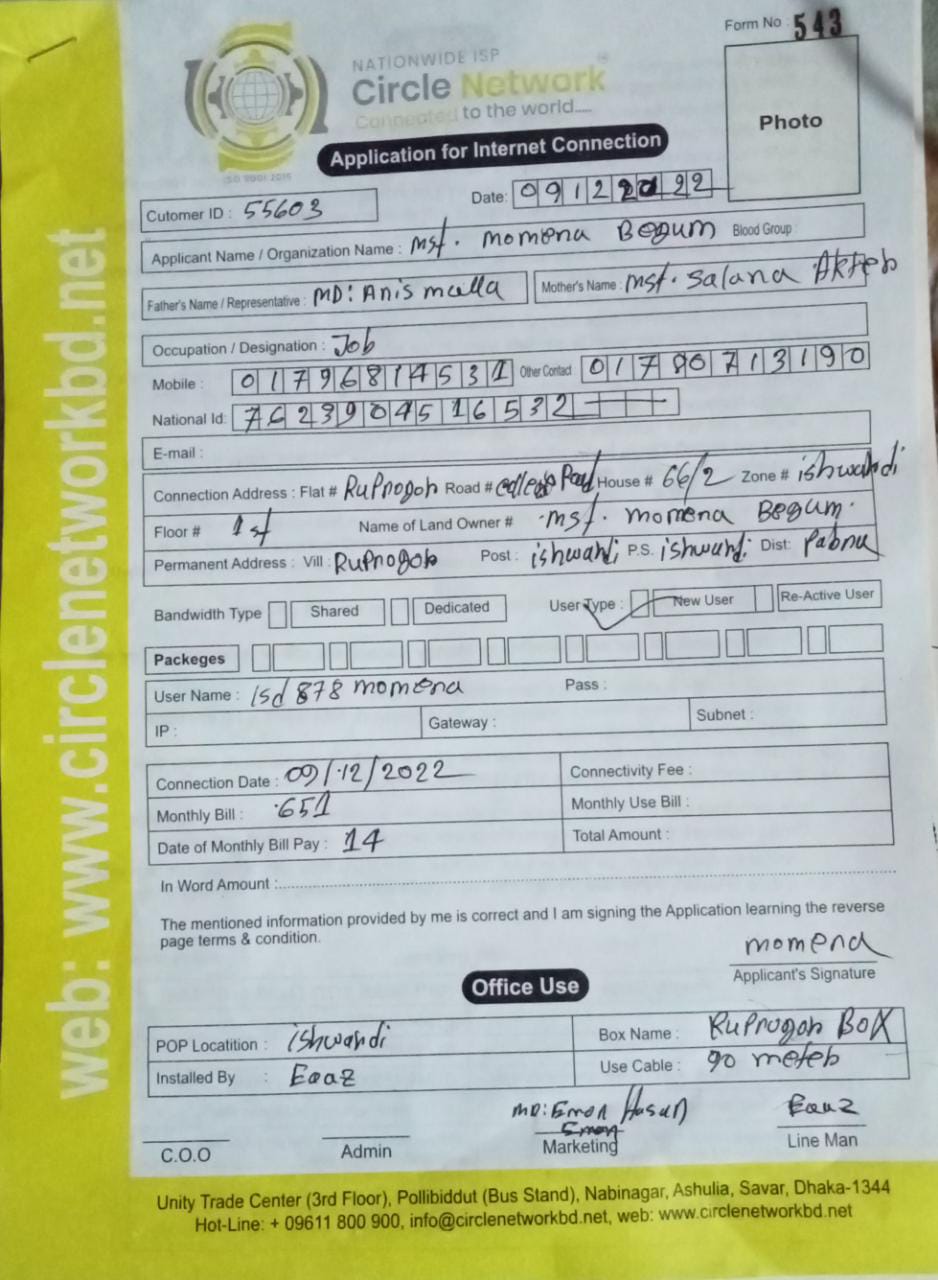 Form No : 543
NATIONWIDE ISP
Circle Network
Connected to the world.....
ISO 9001:2015
Photo
Application for Internet Connection
Date: 09122022
Cutomer ID : 55603
Applicant Name / Organization Name : Mst. Momena Begum Blood Group
Father's Name / Representative : MD: Anis molla Mother's Name : Mst. Salana Akter
Occupation / Designation : Job
Mobile : 01796814531 Other Contact 01780713190
National Id: 7623904516532
E-mail :
Connection Address : Flat # Rupnogor Road # Road House # 66/2 Zone # ishwardi
Floor # 1st Name of Land Owner # Mst. Momena Begum.
Permanent Address : Vill : Rupnogor Post : ishwardi P.S. ishwardi Dist: Pabna
Bandwidth Type Shared Dedicated User Type : New User Re-Active User
Packeges
User Name : isd 878 momena Pass :
IP : Gateway : Subnet :
Connection Date : 09/12/2022 Connectivity Fee :
Monthly Bill : 651 Monthly Use Bill :
Date of Monthly Bill Pay : 14 Total Amount :
In Word Amount :
The mentioned information provided by me is correct and I am signing the Application learning the reverse
page terms & condition.
momena
Applicant's Signature
Office Use
POP Locatition : ishwardi Box Name : Rupnogor Box
Installed By : Eaaz Use Cable : 90 meter
MD: Emon Hasan Eaaz
Emon
C.O.O Admin Marketing Line Man
Unity Trade Center (3rd Floor), Pollibiddut (Bus Stand), Nabinagar, Ashulia, Savar, Dhaka-1344
Hot-Line: + 09611 800 900, info@circlenetworkbd.net, web: www.circlenetworkbd.net
web: www.circlenetworkbd.net